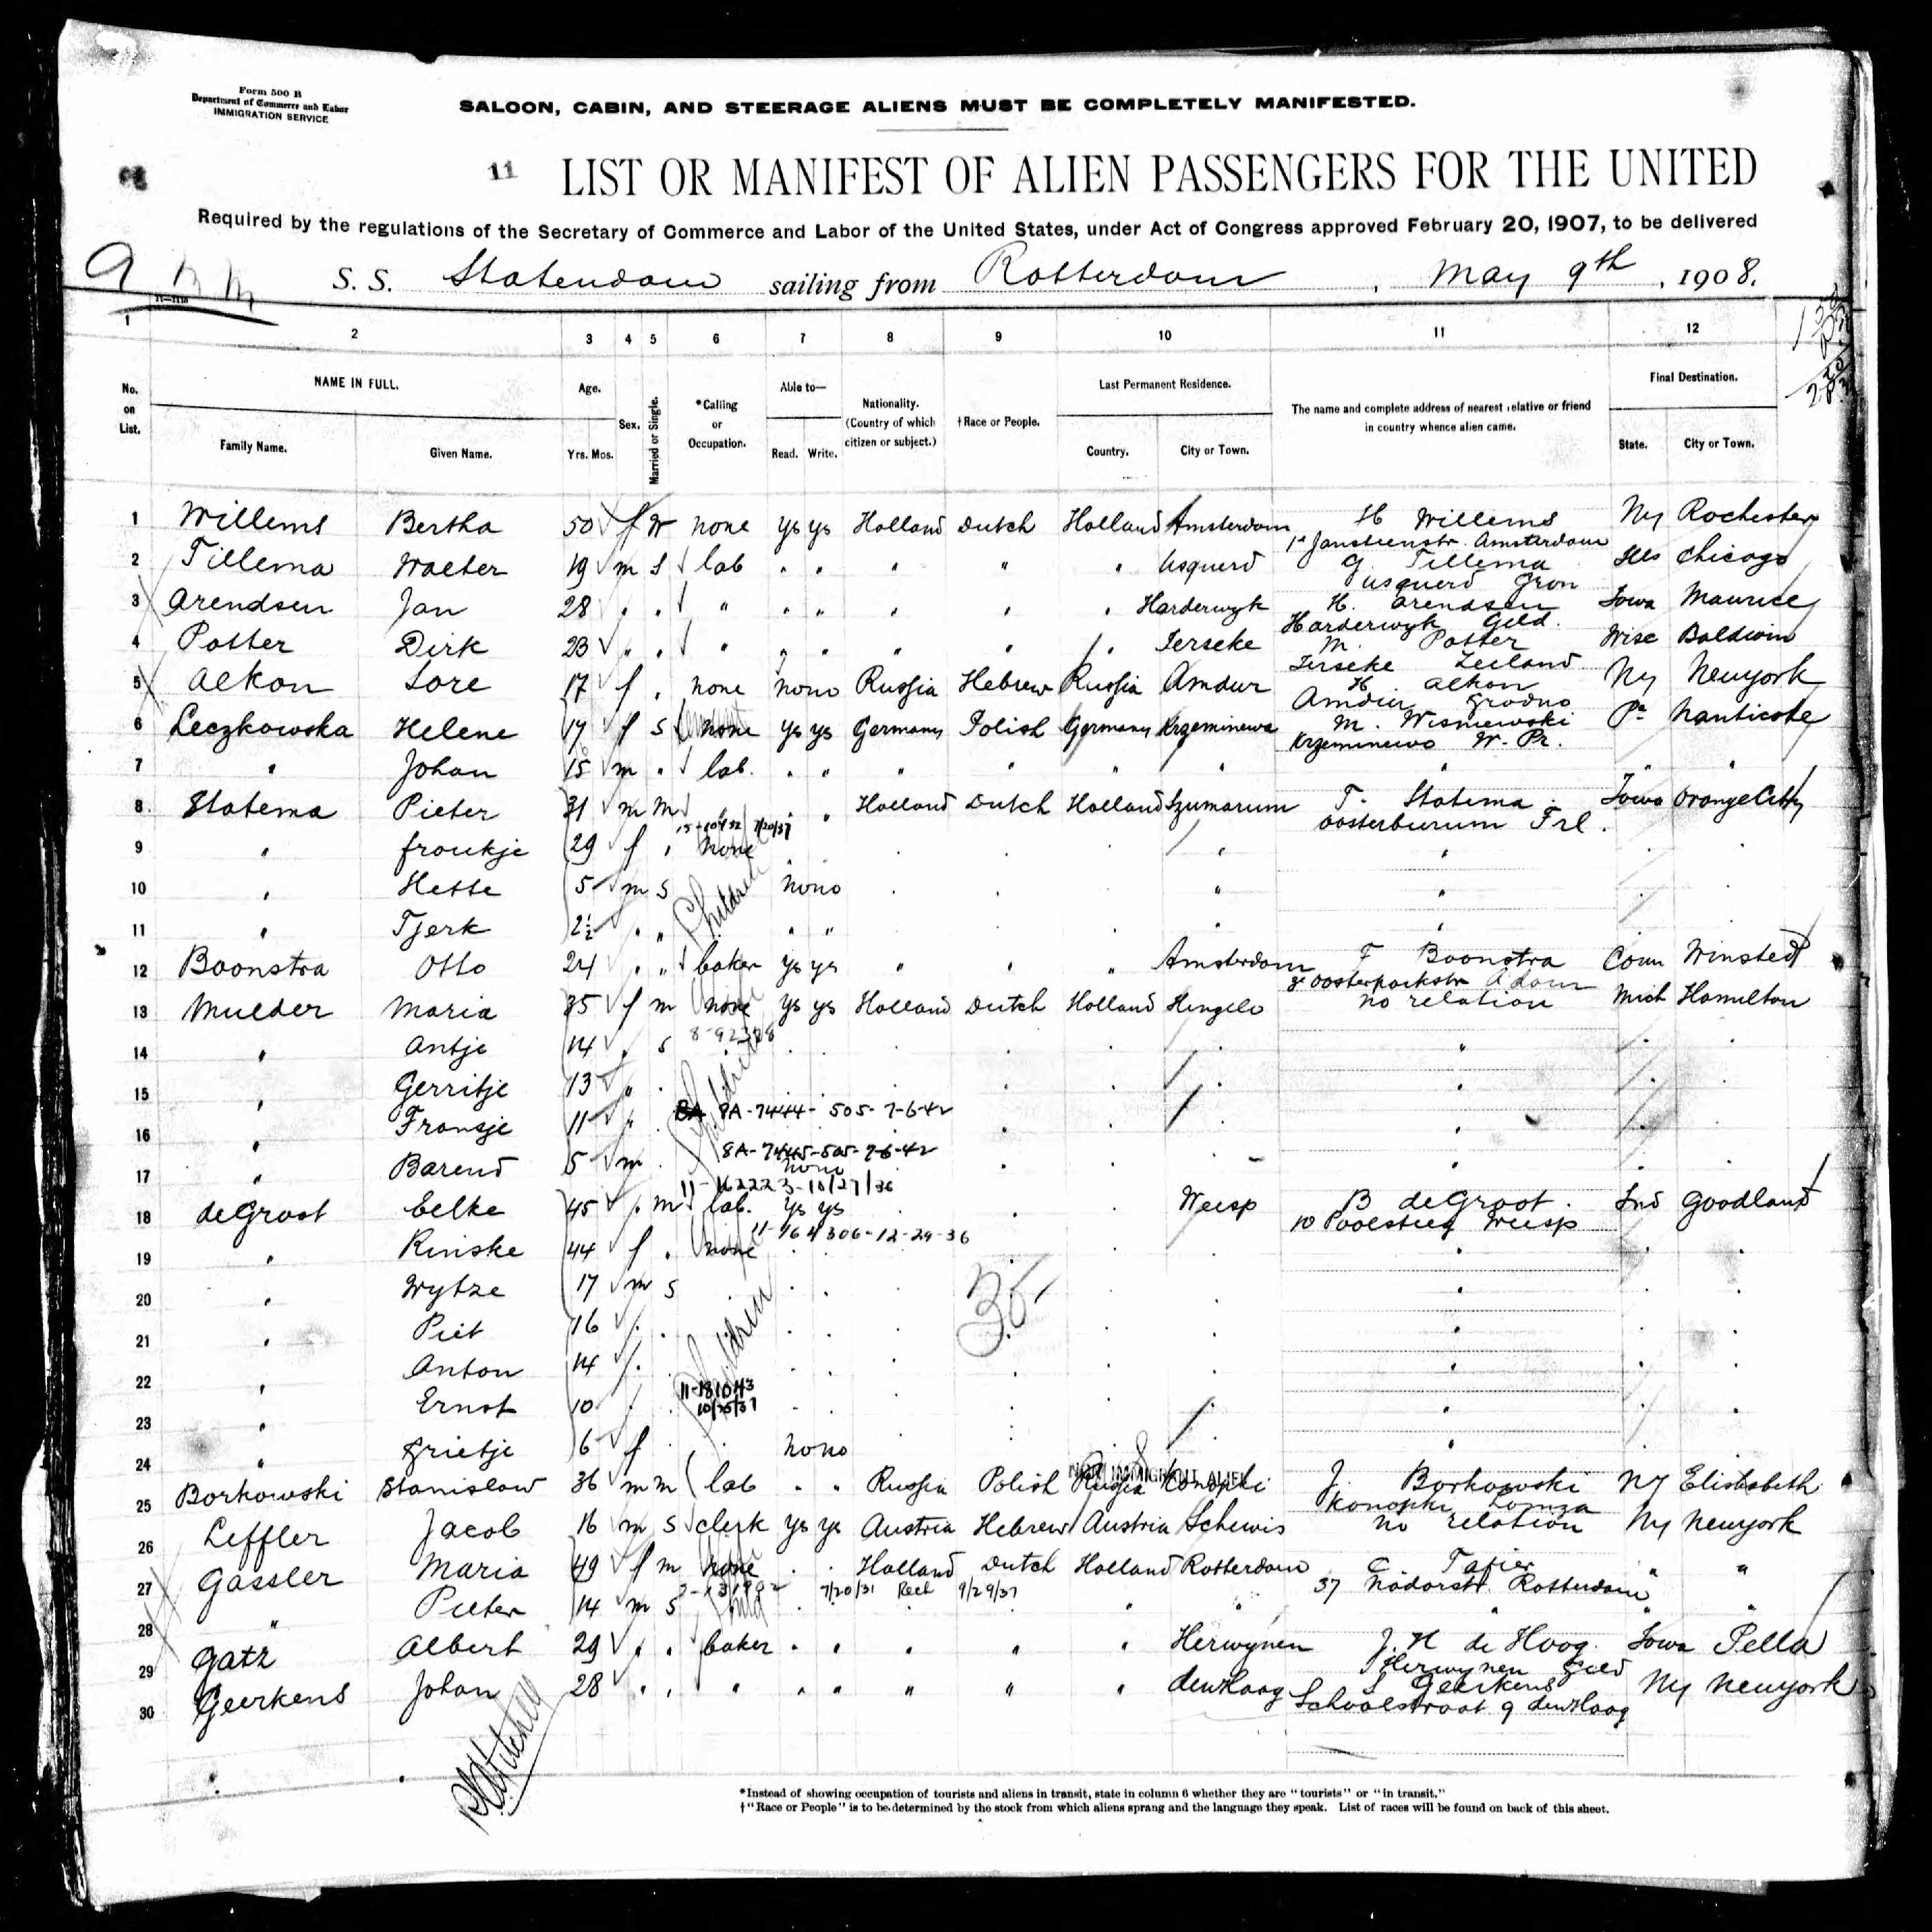 Form 500 B
Department of Commerce and Labor
IMMIGRATION SERVICE
SALOON, CABIN, AND STEERAGE ALIENS MUST BE COMPLETELY MANIFESTED.
11 LIST OR MANIFEST OF ALIEN PASSENGERS FOR THE UNITED
Required by the regulations of the Secretary of Commerce and Labor of the United States, under Act of Congress approved February 20, 1907, to be delivered
S. S. Statendam sailing from Rotterdam, May 9th, 1908.
1 2 3 4 5 6 7 8 9 10 11 12
No. on List. NAME IN FULL. Family Name. Given Name. Age. Yrs. Mos. Sex. Married or Single. *Calling or Occupation. Able to— Read. Write. Nationality. (Country of which citizen or subject.) †Race or People. Last Permanent Residence. Country. City or Town. The name and complete address of nearest relative or friend in country whence alien came. Final Destination. State. City or Town.
1 Willems Bertha 50 f W none ys ys Holland Dutch Holland Amsterdam H Willems Ny Rochester
Amsterdam
2 Tillema Walter 19 m s lab " " " " " Usquerd G. Tillema Ills Chicago
Usquerd Gron
3 Arendsen Jan 28 " " " " " " " " Harderwyk H. Arendsen Iowa Maurice
Harderwyk Geld.
4 Potter Dirk 23 " " " " " " " " Ierseke M. Potter Wisc Baldwin
Ierseke Zeeland
5 Alkon Sore 17 f " none no no Russia Hebrew Russia Amdur H Alkon Ny Newyork
Amdur Grodno
6 Leczkowska Helene 17 f s none ys ys Germany Polish Germany Krzeminewo M. Wisniewski Pa Nanticoke
Krzeminewo W. Pr.
7 " Johan 15 m " lab. " " " " " " " " "
8 Statema Pieter 31 m m " " Holland Dutch Holland Szumarum T. Statema Iowa Orange City
Oosterburum Frl.
9 " Froukje 29 f " none " " " " " " " " "
10 " Hette 5 m s Children no no " " " " " " "
11 " Tjerk 2½ " " " " " " " " " " "
12 Boonstra Otto 24 " " baker ys ys " " " Amsterdam F Boonstra Conn Winsted
Oosterparkstr Adam
13 Mulder Maria 35 f m none ys ys Holland Dutch Holland Hengelo no relation Mich Hamilton
8-92308
14 " Antje 14 " s " " " " " " " " "
15 " Gerritje 13 " " " " " " " " " " "
8A-7444-505-7-6-42
16 " Fransje 11 " " " " " " " " " " "
8A-7445-505-7-6-42
17 " Barend 5 m " no no " " " " " " "
11-162223-10/27/36
18 de Groot Eelke 45 " m lab. ys ys " " " Weesp B de Groot Ind Goodland
11-164306-12-29-36
10 Weesp
19 " Rinske 44 f " none " " " " " " " " "
20 " Wytze 17 m s " " " " " " " " "
21 " Piet 16 " " " " " " " " " " "
22 " Anton 14 " " Children " " " " " " " " "
11-181043
10/25/37
23 " Ernst 10 " " " " " " " " " " "
24 " Grietje 6 f " no no " " " " " " "
NON IMMIGRANT ALIEN
25 Borkowski Stanislaw 36 m m lab " " Russia Polish Russia Konopki J. Borkowski NY Elisabeth
Konopki Lomza
26 Leffler Jacob 16 m s clerk ys ys Austria Hebrew Austria Schewis no relation Ny Newyork
27 Gassler Maria 49 f m none " " Holland Dutch Holland Rotterdam C Tafier " "
7/20/31 9/29/37
37 Rotterdam
28 " Pieter 14 m s child " " " " " " " " "
29 Gatz Albert 29 " " baker " " " " " Herwynen J. H de Hoog Iowa Pella
Herwynen Geld
30 Geerkens Johan 28 " " " " " " " " den Haag Geerkens Ny Newyork
Schoolstraat 9 den Haag
*Instead of showing occupation of tourists and aliens in transit, state in column 6 whether they are "tourists" or "in transit."
†"Race or People" is to be determined by the stock from which aliens sprang and the language they speak. List of races will be found on back of this sheet.